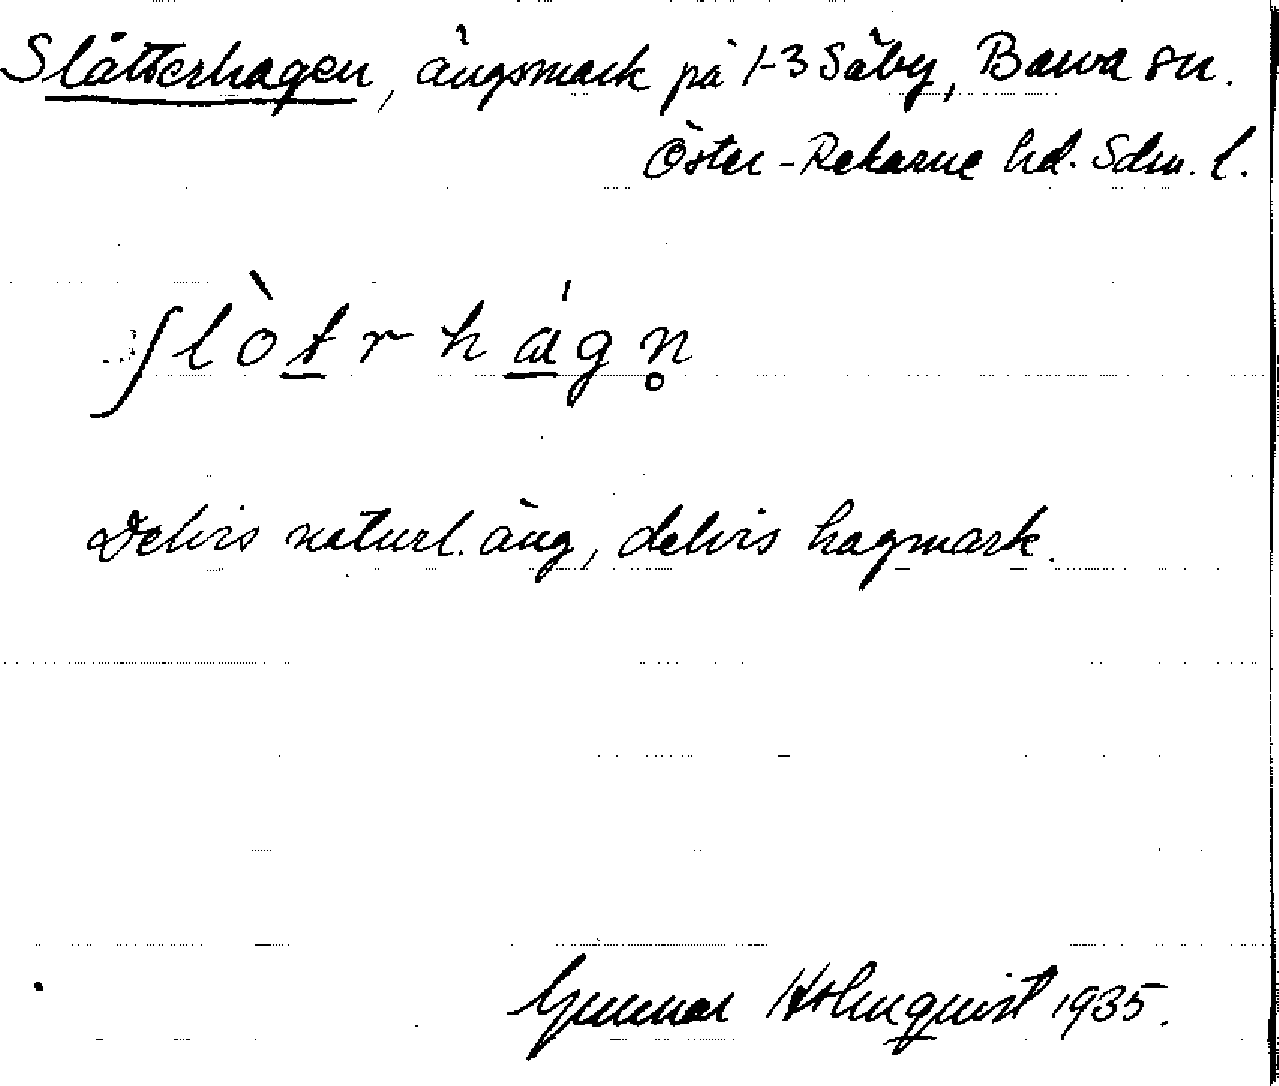 Slåtterhagen, ängsmark på 1-3 Säby, Barva sn.
Öster-Rekarne hd. Sdm. l.
ʃlòtrhágn̥
Delvis naturl. äng, delvis hagmark.
Gunnar Holmquist 1935.